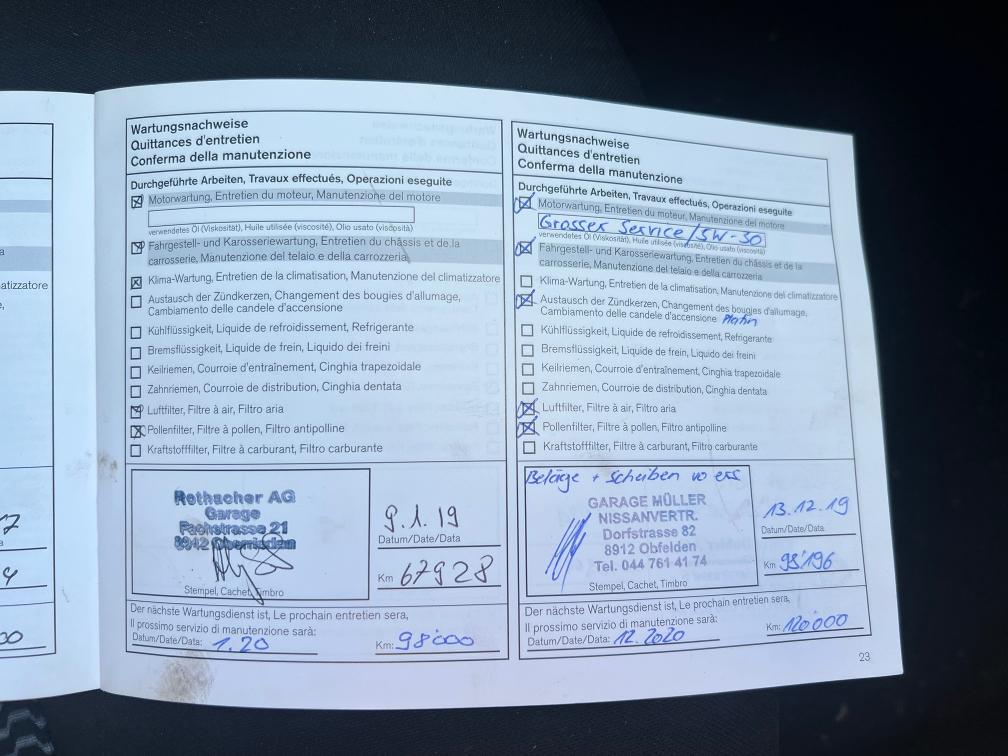 a
atizzatore
a,
17
a
4
00
Wartungsnachweise
Quittances d'entretien
Conferma della manutenzione
Durchgeführte Arbeiten, Travaux effectués, Operazioni eseguite
Motorwartung, Entretien du moteur, Manutenzione del motore
verwendetes Öl (Viskosität), Huile utilisée (viscosité), Olio usato (viscosità)
Fahrgestell- und Karosseriewartung, Entretien du châssis et de la
carrosserie, Manutenzione del telaio e della carrozzeria
Klima-Wartung, Entretien de la climatisation, Manutenzione del climatizzatore
Austausch der Zündkerzen, Changement des bougies d'allumage,
Cambiamento delle candele d'accensione
Kühlflüssigkeit, Liquide de refroidissement, Refrigerante
Bremsflüssigkeit, Liquide de frein, Liquido dei freini
Keilriemen, Courroie d'entraînement, Cinghia trapezoidale
Zahnriemen, Courroie de distribution, Cinghia dentata
Luftfilter, Filtre à air, Filtro aria
Pollenfilter, Filtre à pollen, Filtro antipolline
Kraftstofffilter, Filtre à carburant, Filtro carburante
Rothacher AG
Garage
Fachstrasse 21
8942 Oberrieden
Stempel, Cachet, Timbro
9.1.19
Datum/Date/Data
Km 67928
Der nächste Wartungsdienst ist, Le prochain entretien sera,
Il prossimo servizio di manutenzione sarà:
Datum/Date/Data: 1.20 Km: 98'000
Wartungsnachweise
Quittances d'entretien
Conferma della manutenzione
Durchgeführte Arbeiten, Travaux effectués, Operazioni eseguite
Motorwartung, Entretien du moteur, Manutenzione del motore
Grosser Service/5W-30
verwendetes Öl (Viskosität), Huile utilisée (viscosité), Olio usato (viscosità)
Fahrgestell- und Karosseriewartung, Entretien du châssis et de la
carrosserie, Manutenzione del telaio e della carrozzeria
Klima-Wartung, Entretien de la climatisation, Manutenzione del climatizzatore
Austausch der Zündkerzen, Changement des bougies d'allumage,
Cambiamento delle candele d'accensione Platin
Kühlflüssigkeit, Liquide de refroidissement, Refrigerante
Bremsflüssigkeit, Liquide de frein, Liquido dei freini
Keilriemen, Courroie d'entraînement, Cinghia trapezoidale
Zahnriemen, Courroie de distribution, Cinghia dentata
Luftfilter, Filtre à air, Filtro aria
Pollenfilter, Filtre à pollen, Filtro antipolline
Kraftstofffilter, Filtre à carburant, Filtro carburante
Beläge + Scheiben vo ers
GARAGE MÜLLER
NISSANVERTR.
Dorfstrasse 82
8912 Obfelden
Tel. 044 761 41 74
Stempel, Cachet, Timbro
13.12.19
Datum/Date/Data
Km 98'196
Der nächste Wartungsdienst ist, Le prochain entretien sera,
Il prossimo servizio di manutenzione sarà:
Datum/Date/Data: 12.2020 Km: 120'000
23